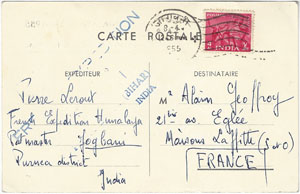 CARTE POSTALE
INDIA
EXPÉDITEUR
DESTINATAIRE
BIHAR
INDIA
Pierre Leroux
French Expedition Himalaya
Postmaster Jogbani
Purnea district
India
Mr Alain Geoffroy
21 av. Eglée
Maisons Laffitte (S et O)
FRANCE